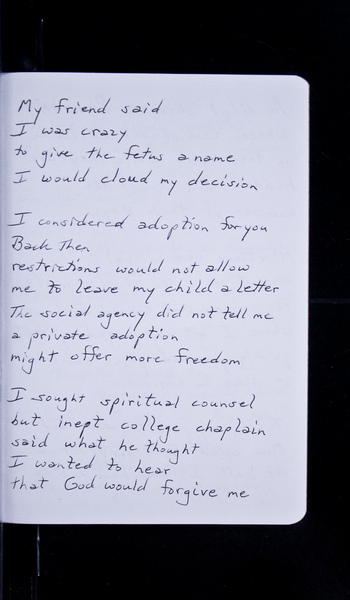 My friend said
I was crazy
to give the fetus a name
I would cloud my decision
I considered adoption for you
Back then
restrictions would not allow
me to leave my child a letter
The social agency did not tell me
a private adoption
might offer more freedom
I sought spiritual counsel
but inept college chaplain
said what he thought
I wanted to hear
that God would forgive me